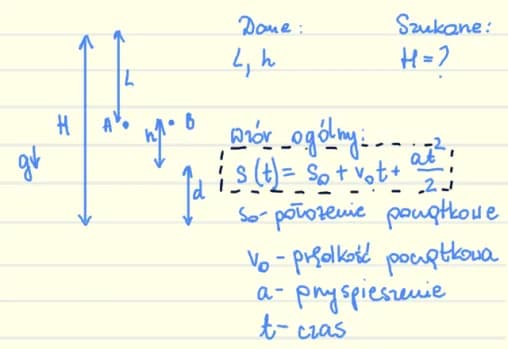 Dane:
Szukane:
L, h
H = ?
L
H
A
h
B
g
d
wzór ogólny:
s(t) = s₀ + v₀t + at²/2
s₀ - położenie początkowe
v₀ - prędkość początkowa
a - przyspieszenie
t - czas